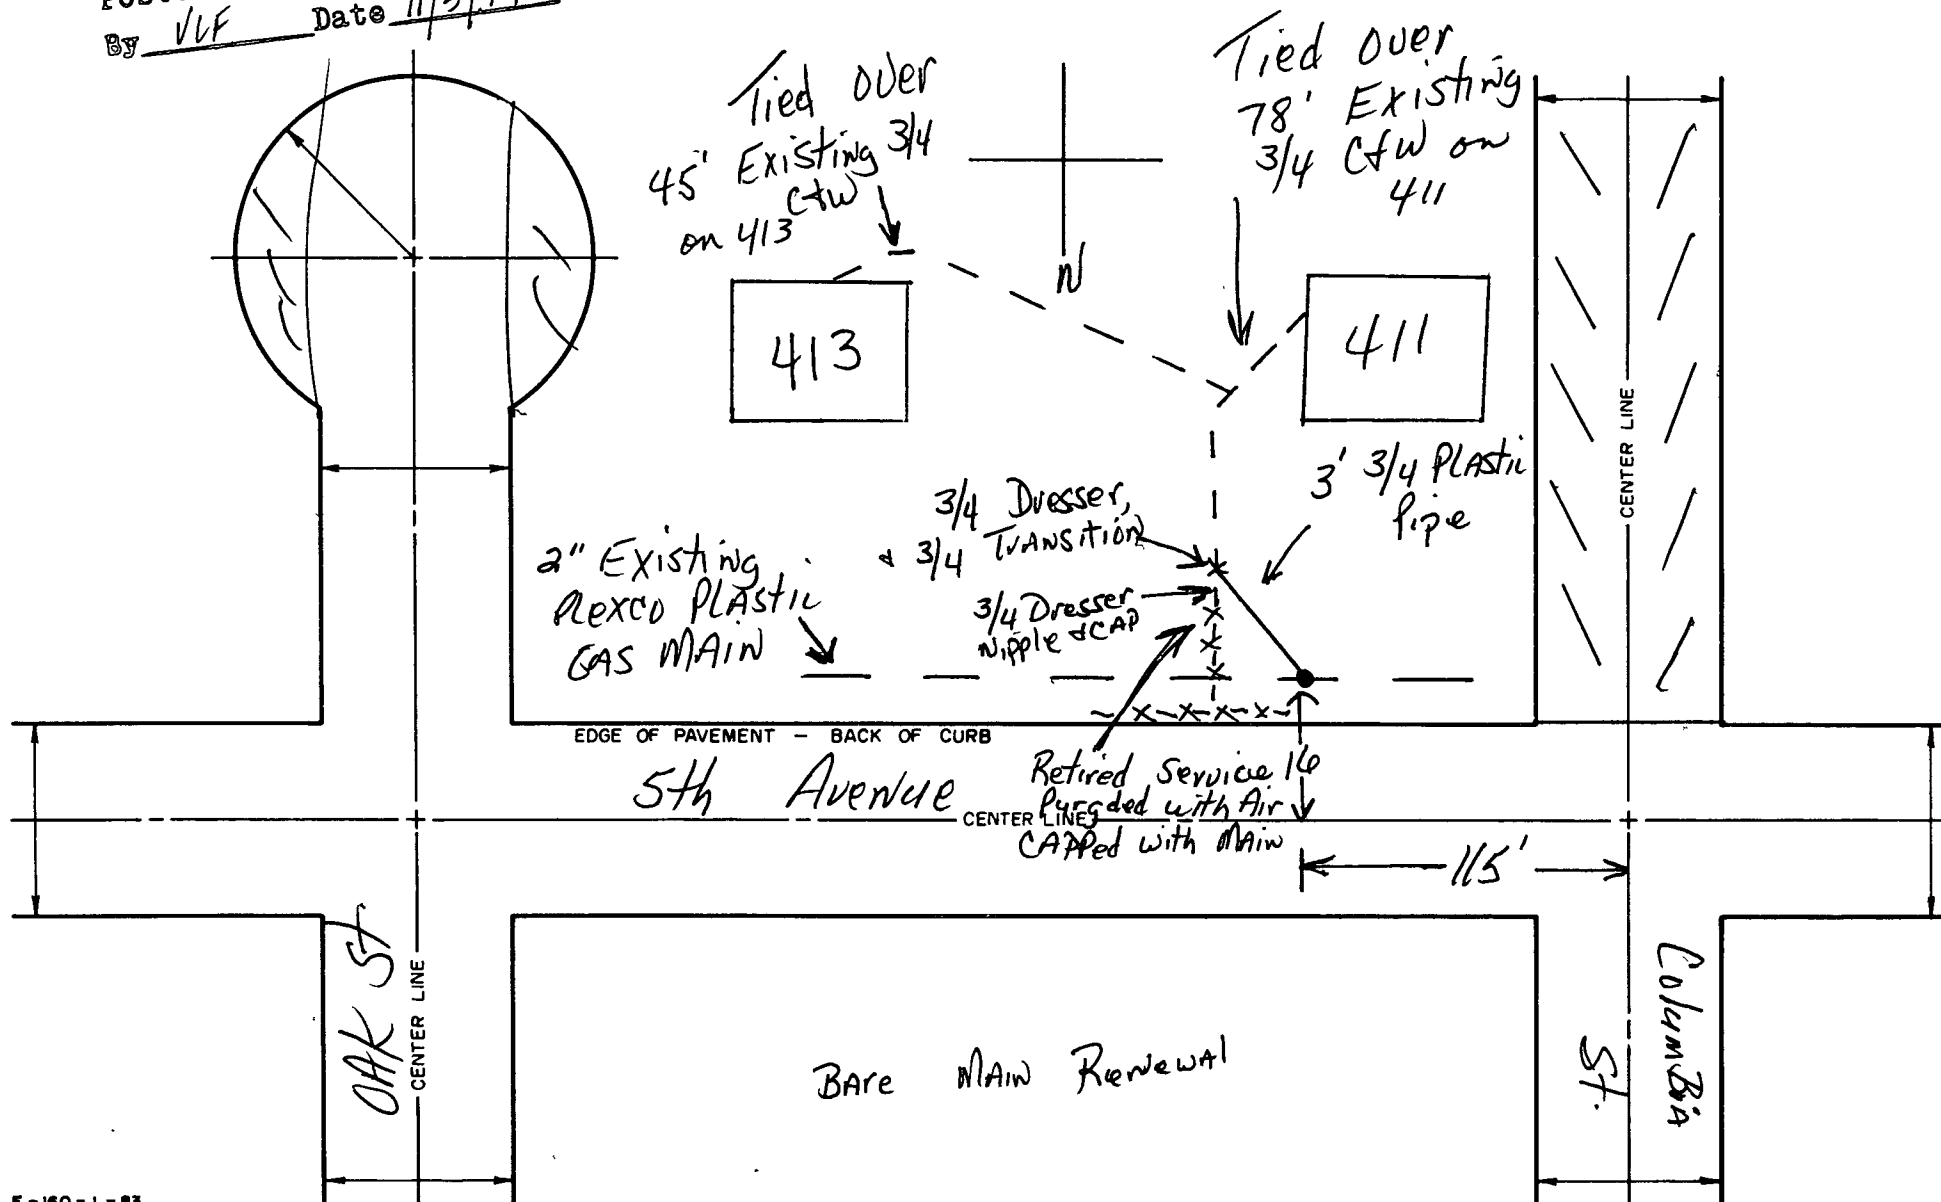 By VLF Date
Tied over
45' Existing 3/4
C+W
on 413
Tied over
78' Existing
3/4 C+W on
411
N
413
411
CENTER LINE
3' 3/4 Plastic
Pipe
3/4 Dresser,
& 3/4 Transition
3/4 Dresser
Nipple & CAP
2" Existing
Plexco Plastic
GAS MAIN
EDGE OF PAVEMENT – BACK OF CURB
5th Avenue
CENTER LINE
Retired Service
Purgded with Air
CAPPed with Main
16
115'
OAK ST
CENTER LINE
Columbia
St.
Bare Main Renewal